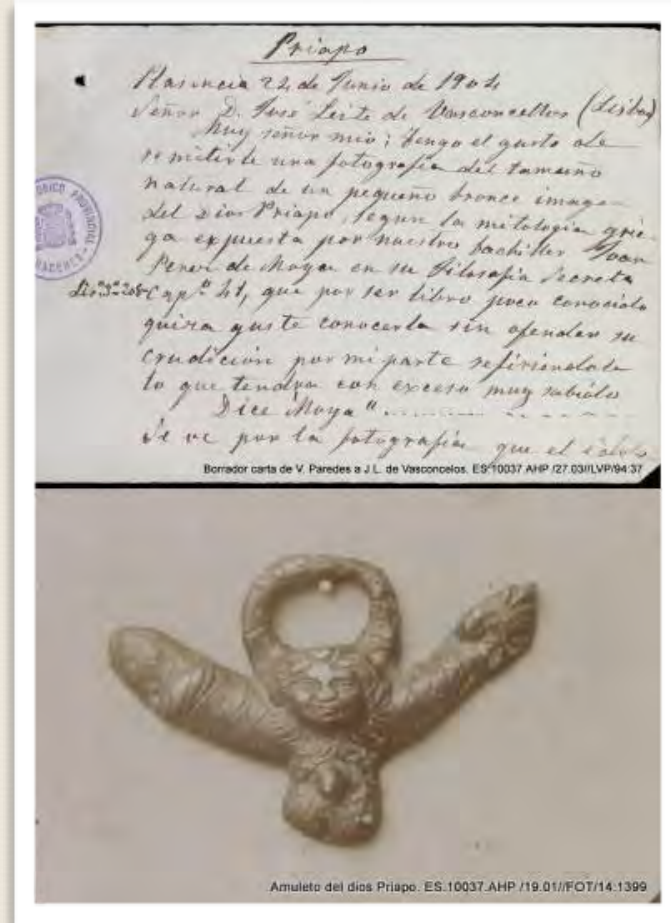 Priapo
Plasencia 22 de Junio de 1904
Señor D. José Leite de Vasconcellos (Lisboa)
Muy señor mio: Tengo el gusto de
remitirle una fotografia del tamaño
natural de un pequeño bronce image
del Dios Priapo, segun la mitologia grie
ga expuesta por nuestro bachiller Juan
Perez de Moya en su Filosofia Secreta
Capº 41, que por ser libro poco conocido
quiza guste conocerla sin ofender su
erudición por mi parte refiriendole
lo que tendra con exceso muy sabido
Dice Moya "
Se ve por la fotografia que el idolo
Borrador carta de V. Paredes a J.L. de Vasconcelos. ES.10037.AHP /27.03//LVP/94:37
Amuleto del dios Priapo. ES.10037.AHP /19.01//FOT/14:1399